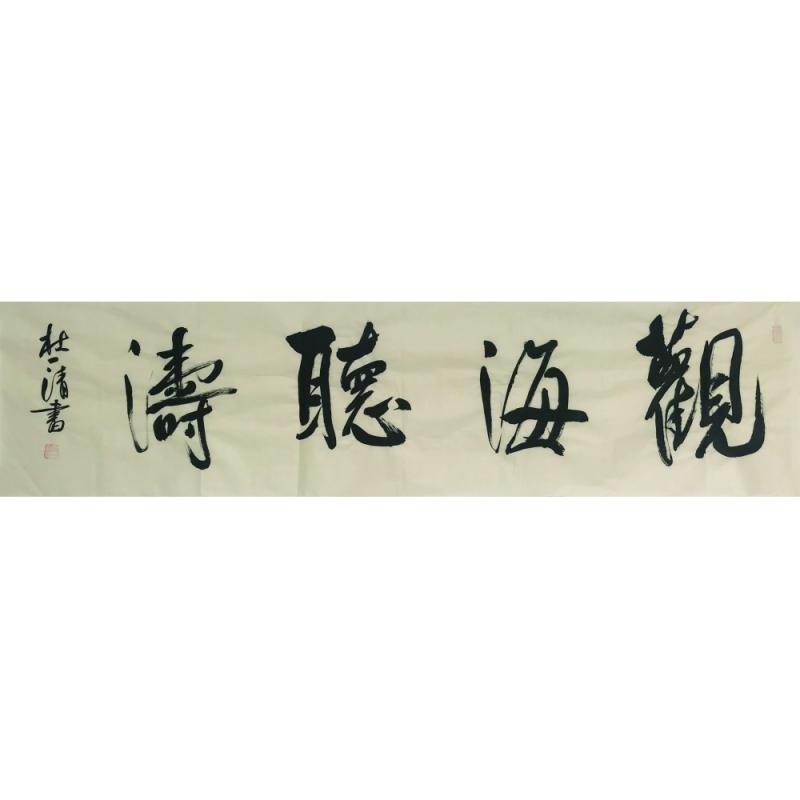 觀海聽濤
杜一清書